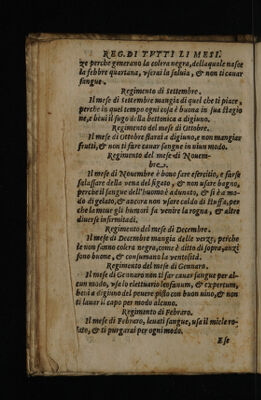 REG. DI TVTTI LI MESI.
ze perche generano la colera negra, dellaquale nasce
la febbre quartana, vserai la saluia, & non ti cauar
sangue.
Regimento di Settembre.
Il mese di Settembre mangia di quel che ti piace,
perche in quel tempo ogni cosa è buona in sua stagio
ne, e beui il sugo della bettonica a digiuno.
Regimento del mese di Ottobre.
Il mese di Ottobre starai a digiuno, e non mangiar
frutti, & non ti fare cauar sangue in niun modo.
Regimento del mese di Nouem-
bre.
Il mese di Nouembre è bono fare esercitio, e farse
salassare della vena del figato, & non vsare bagno,
perche il sangue dell'huomo è adunato, & si è a mo-
do di gelato, & ancora non vsare caldo di stuffa, per
che la moue gli humori fa venire la rogna, & altre
diuerse infirmitadi.
Regimento del mese di Decembre.
Il mese di Decembre mangia delle verze, perche
le non fanno colera negra, come è ditto di sopra, anzi
sono buone, & consumano la ventosità.
Regimento del mese di Gennaro.
Il mese di Gennaro non ti far cauar sangue per al-
cun modo, vsa lo elettuario leofanum, & expertum,
beui a digiuno del peuere pisto con buon uino, & non
ti lauar il capo per modo alcuno.
Regimento di Febraro.
Il mese di Febraro, leuati sangue, vsa il mele ro-
sato, & ti purgarai per ogni modo.
Ese